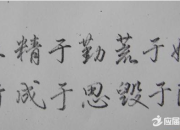 精于勤荒于
成于思毁于
应届